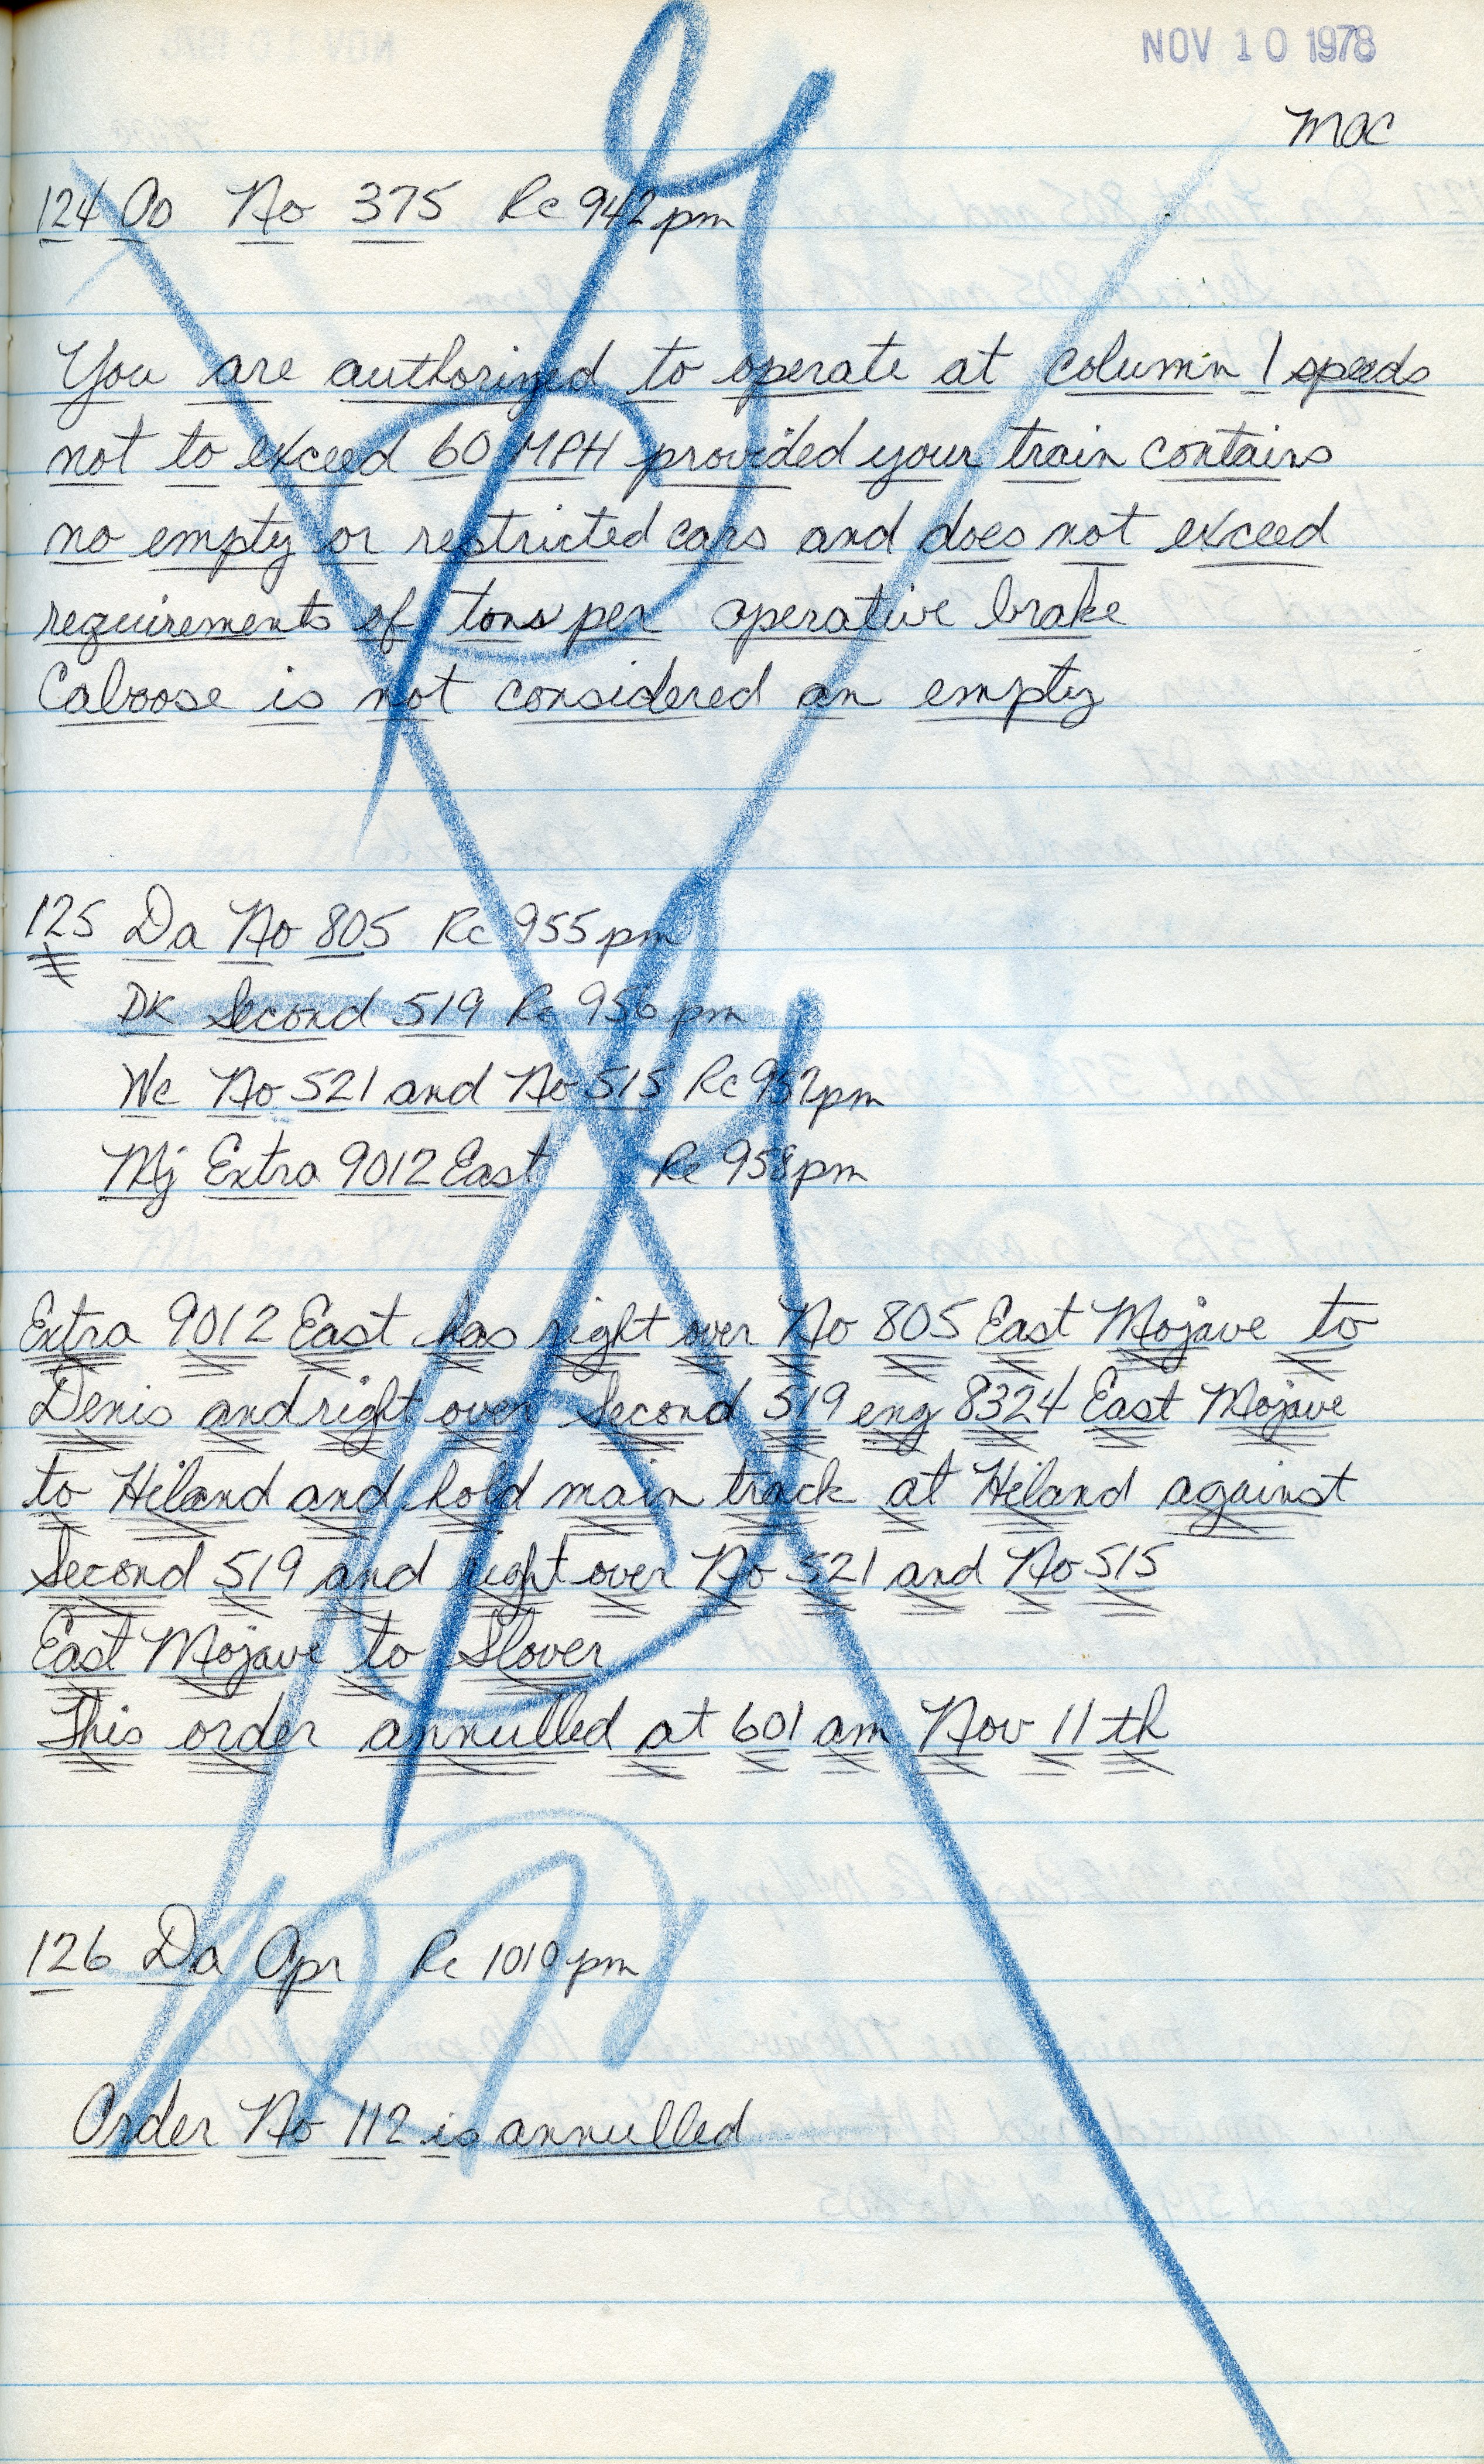 NOV 10 1978
mac
124 Co No 375 Rc 942 pm
You are authorized to operate at column 1 speeds
not to exceed 60 MPH provided your train contains
no empty or restricted cars and does not exceed
requirements of tons per operative brake
Caboose is not considered an empty
125 Da No 805 Rc 955 pm
DK Second 519 Rc 956 pm
Wc No 521 and No 515 Rc 957 pm
Mj Extra 9012 East Rc 958 pm
Extra 9012 East has right over No 805 East Mojave to
Denis and right over Second 519 eng 8324 East Mojave
to Hiland and hold main track at Hiland against
Second 519 and right over No 521 and No 515
East Mojave to Slover
This order annulled at 601 am Nov 11 th
126 Da Opr Rc 1010 pm
Order No 112 is annulled